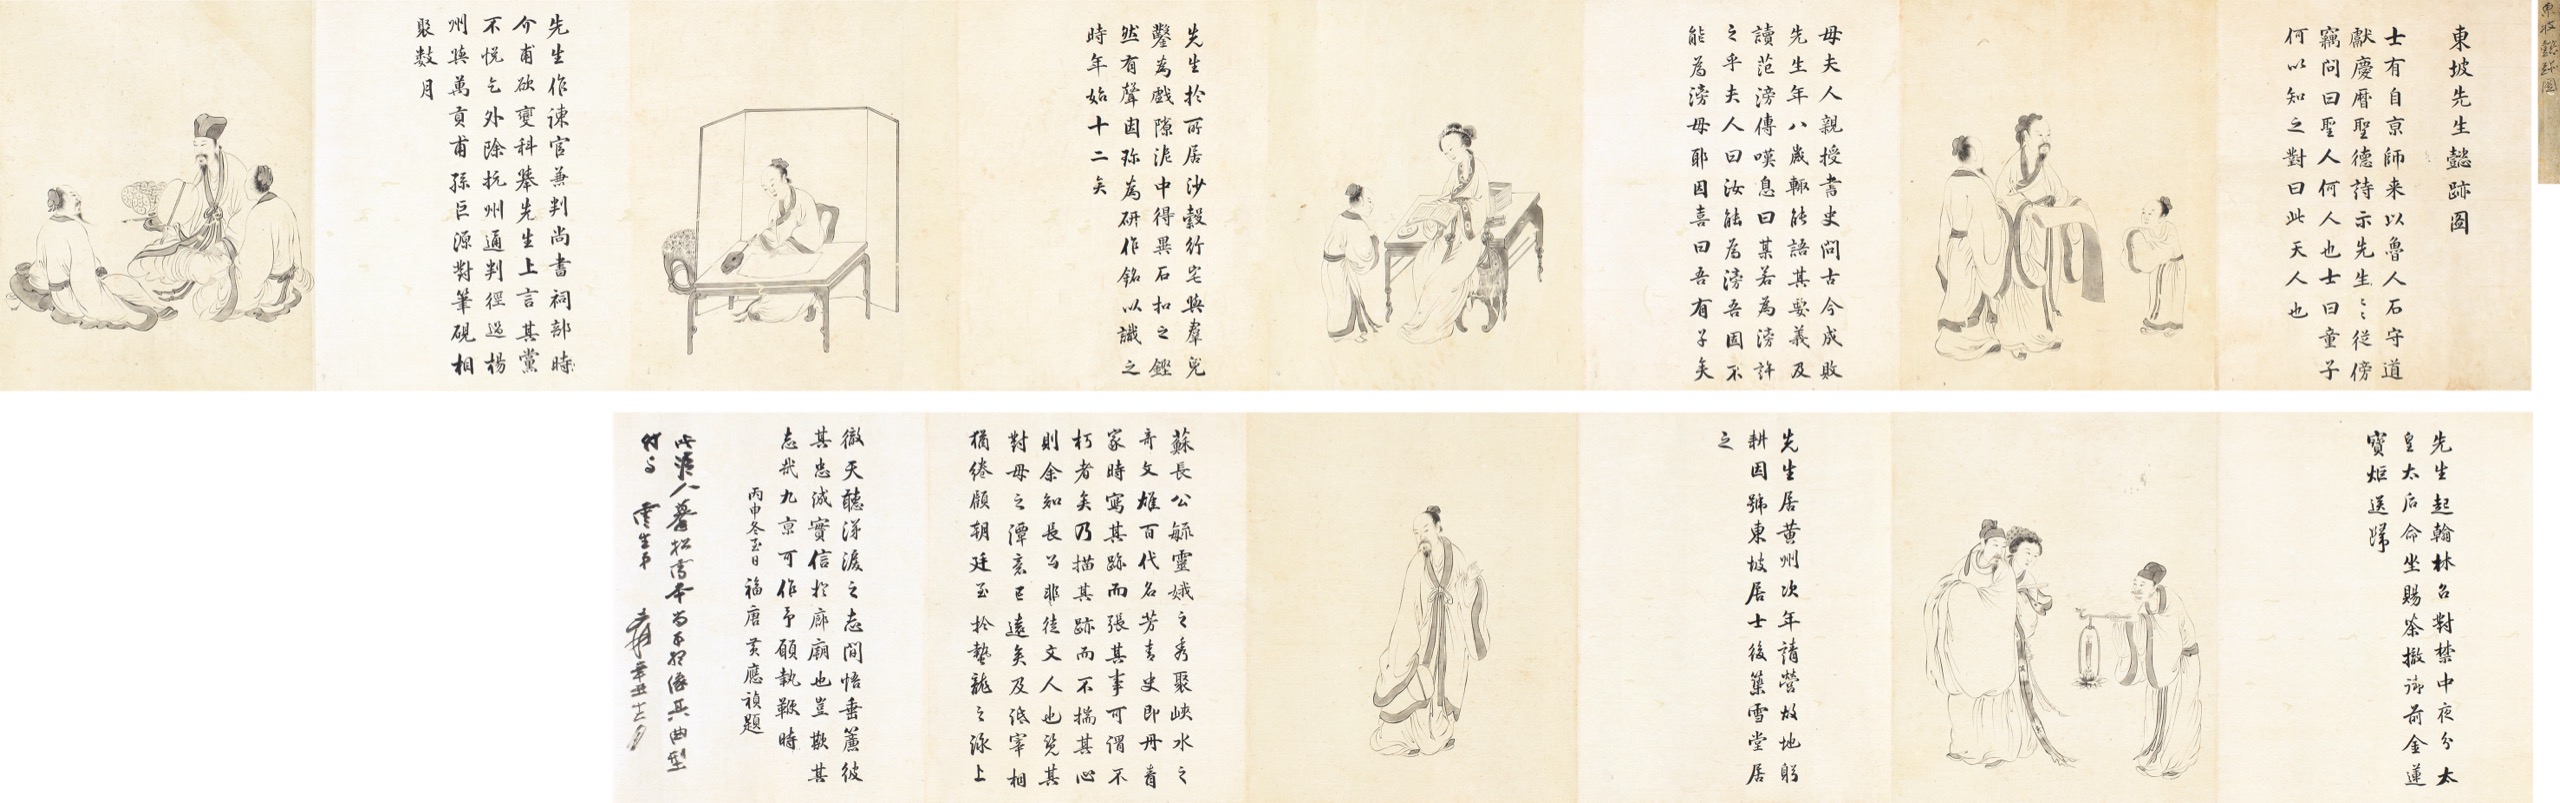 東坡懿跡圖
東坡先生懿跡圖
士有自京師来以魯人石守道
獻慶曆聖德詩示先生先生從傍
竊問曰聖人何人也士曰童子
何以知之對曰此天人也
母夫人親授書史問古今成敗
先生年八歲輒能語其要義及
讀范滂傳嘆息曰某若為滂許
之乎夫人曰汝能為滂吾固不
能為滂母耶因喜曰吾有子矣
先生於所居沙縠行宅與羣兒
鑿為戲隙泥中得異石扣之鏗
然有聲因珎為研作銘以識之
時年始十二矣
先生作諫官兼判尚書祠部時
介甫欲變科舉先生上言其黨
不悅乞外除杭州通判徑過楊
州與萬貢甫孫巨源對筆硯相
聚數月
先生起翰林召對禁中夜分太
皇太后命坐賜茶撤御前金蓮
寶炬送歸
先生居黄州次年請營故地躬
耕因號東坡居士後築雪堂居
之
蘇長公毓靈娥之秀聚峽水之
奇文雄百代名芳青史即丹青
家時寫其跡而張其事可謂不
朽者矣乃描其跡而不揣其心
則余知長公非徒文人也覧其
對母之譚意已遠矣及涖宰相
猶綣顧朝廷至於蟄龍之詠上
徹天聽洊湲之志間悟垂簾彼
其忠誠實信於廊廟也豈欺其
志哉九京可作予願執鞭時
丙申冬至日福唐黄應禎題
此滏人摹松雪本尚不
其典型
付与
辛丑十二月